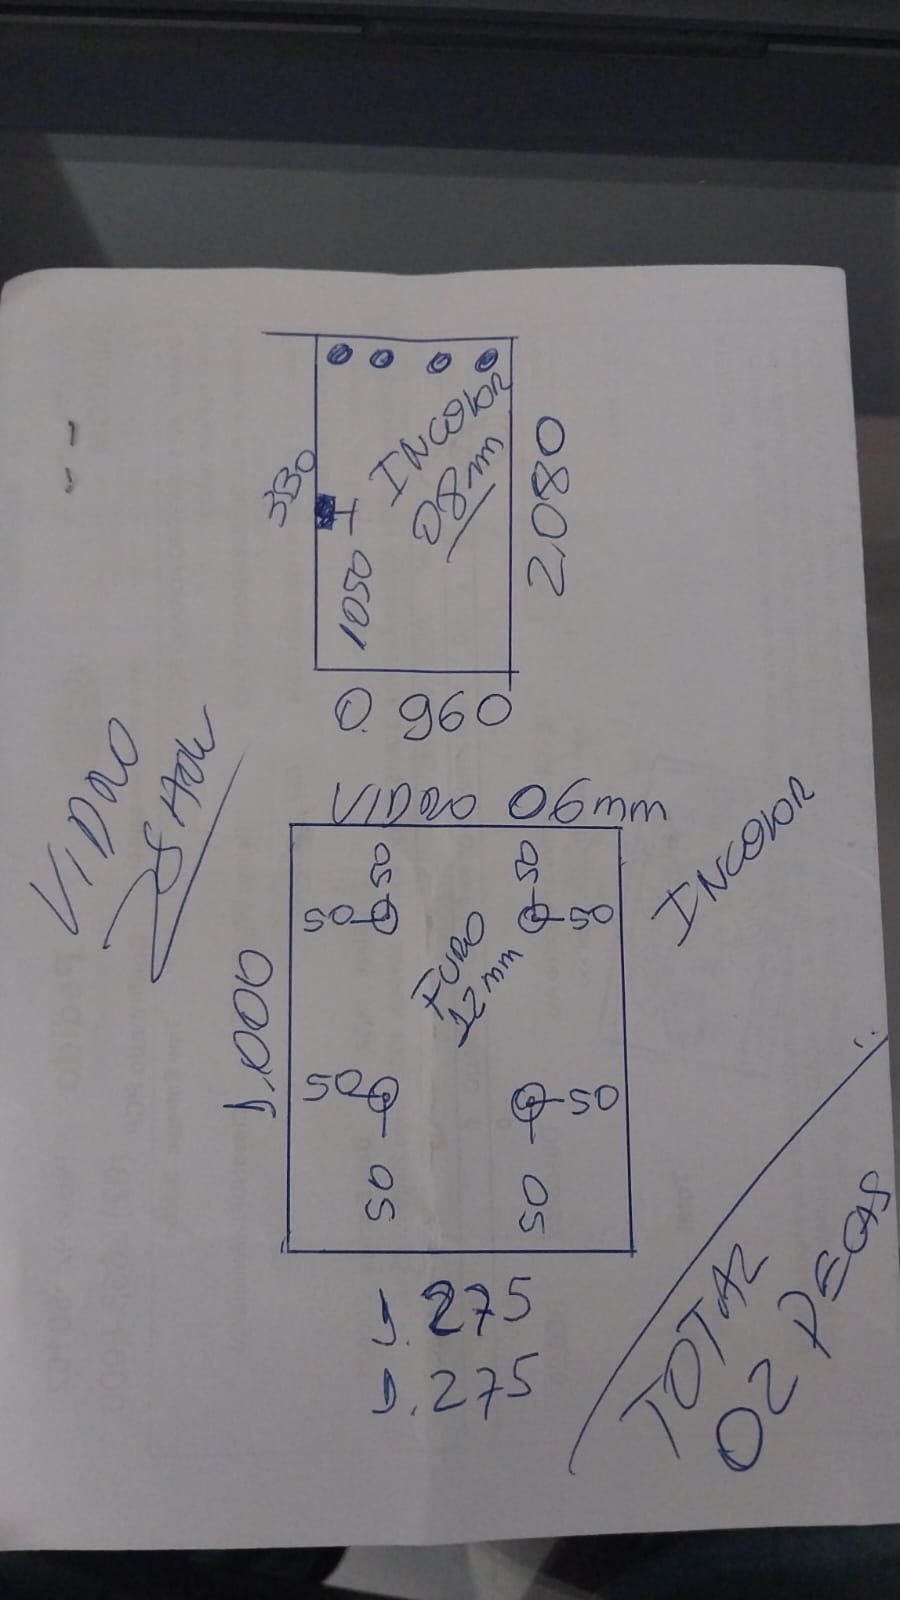 INCOLOR
08mm
1050
2.080
0.960
VIDRO
VIDRO 06mm
INCOLOR
50
50
50
50
FURO
12mm
1.000
50
50
50
50
1.275
1.275
TOTAL
02 PEÇAS